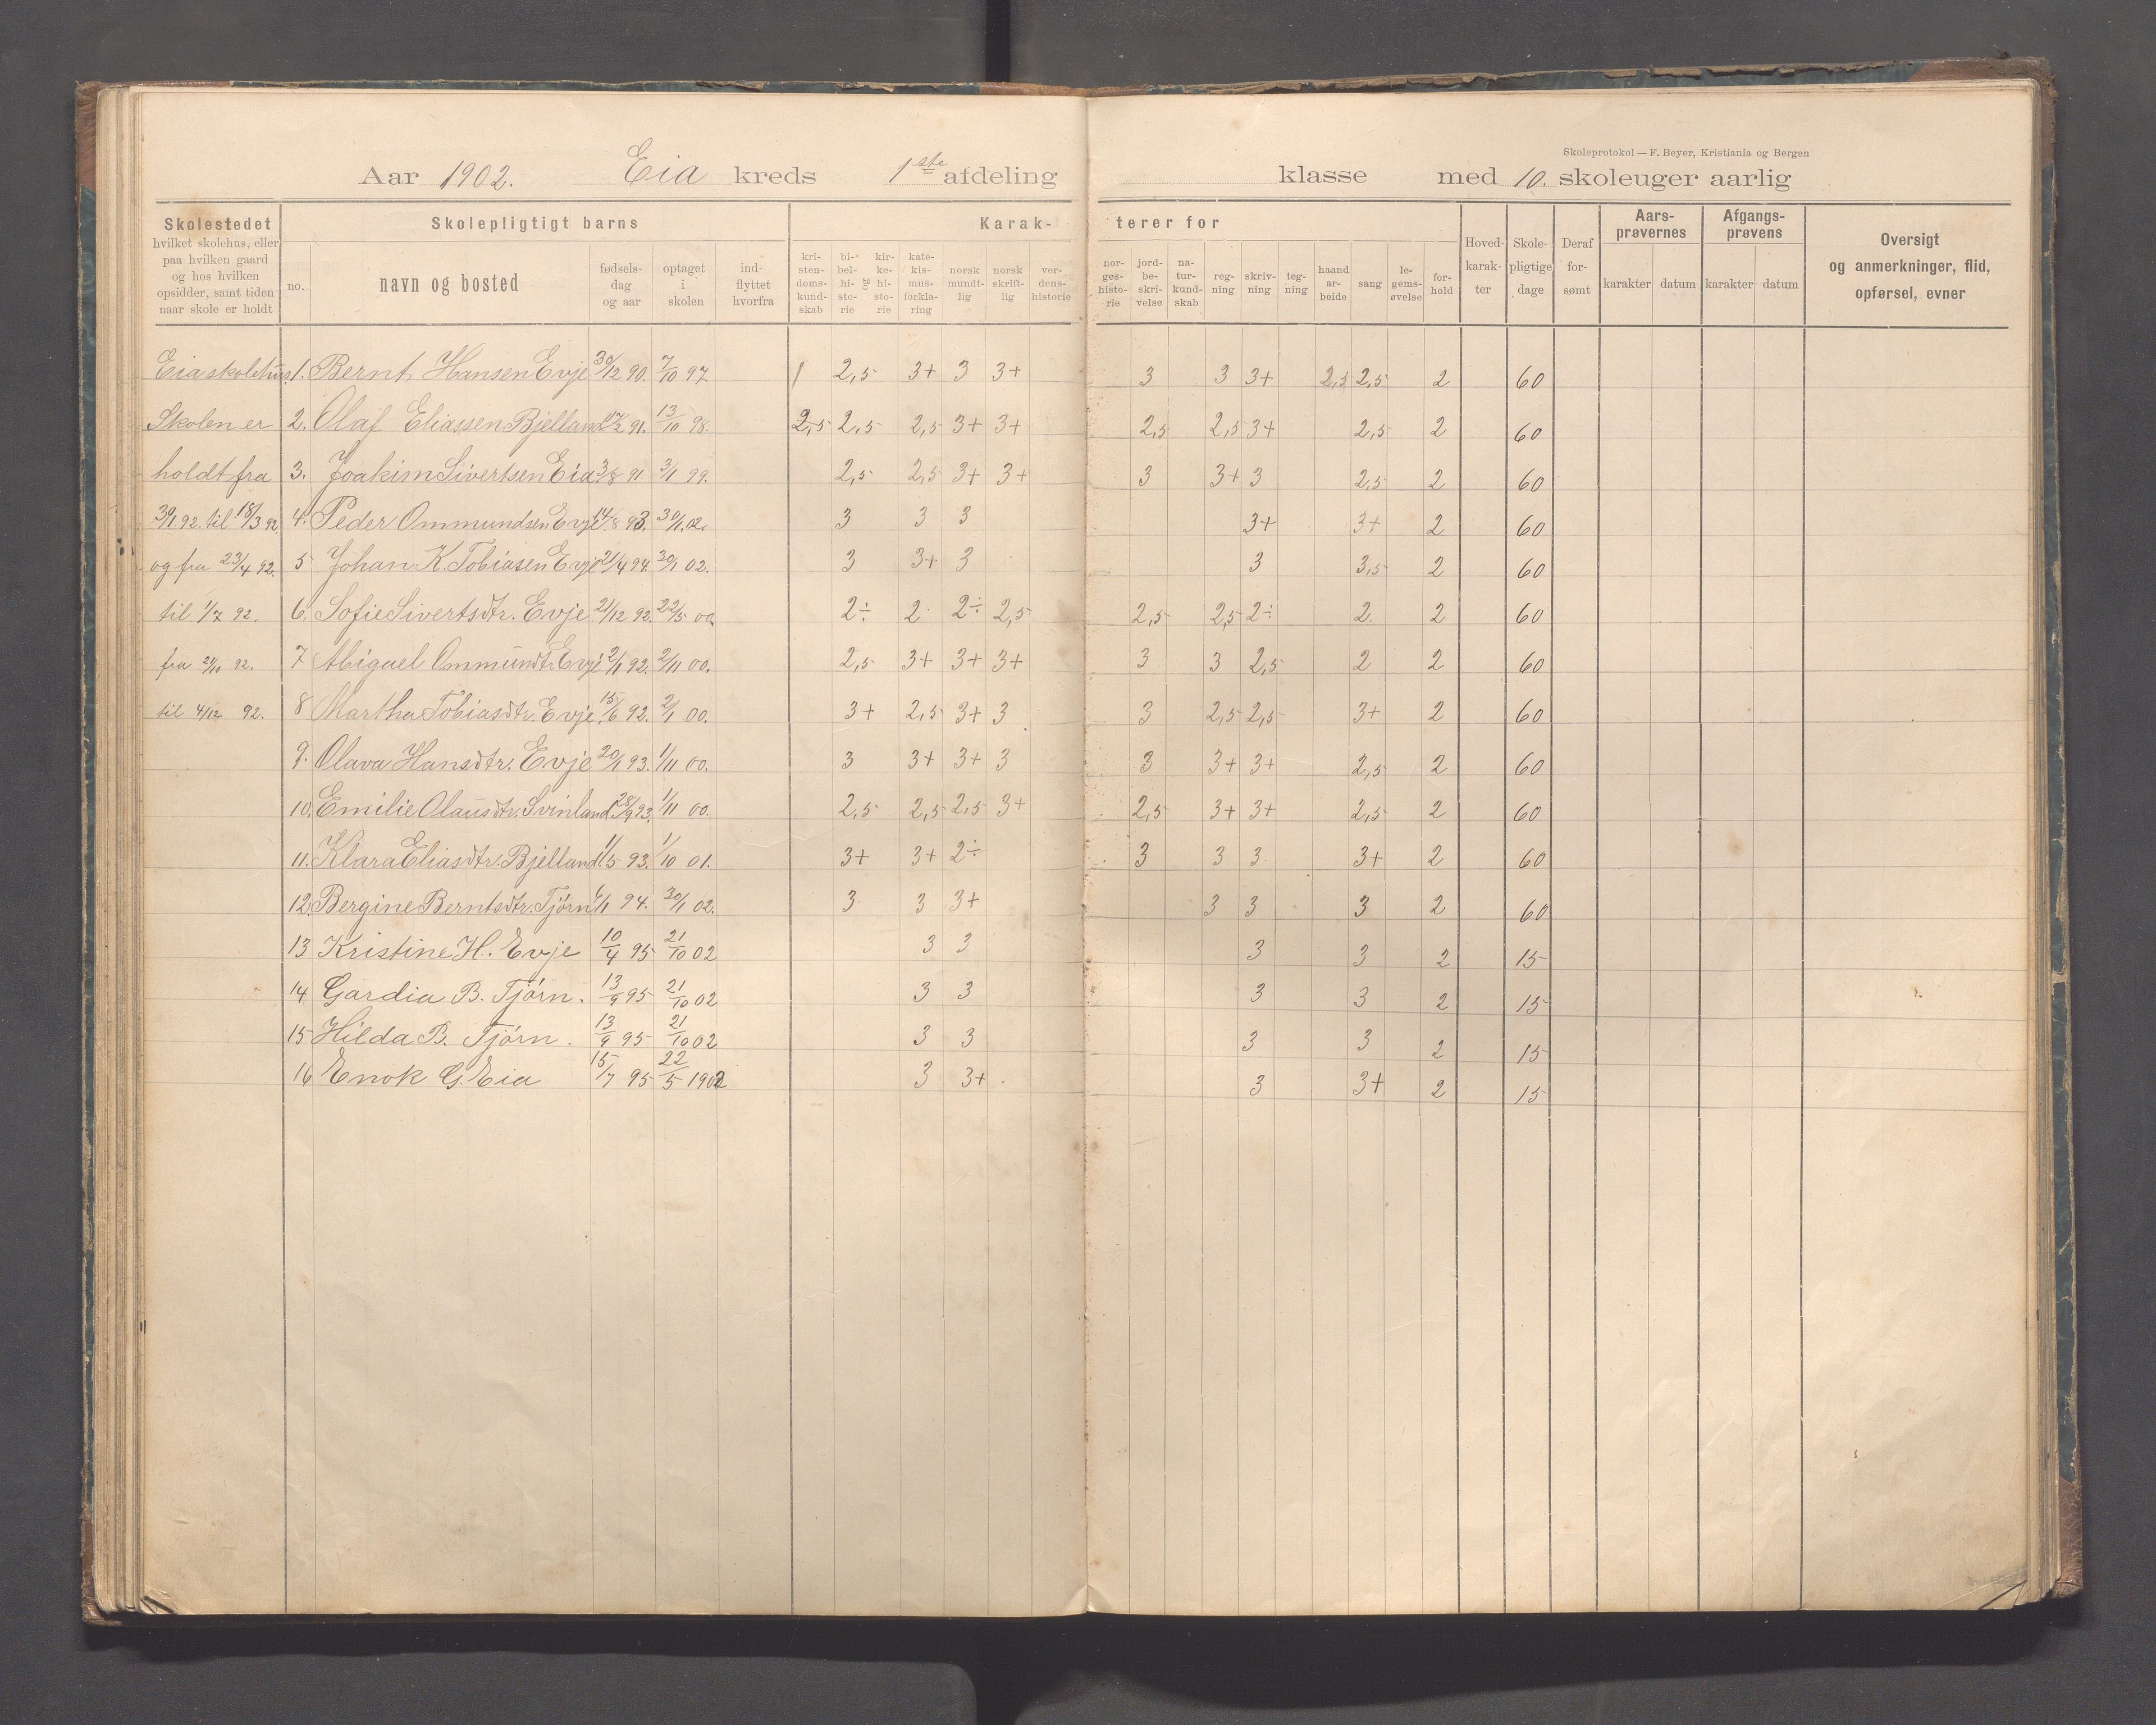 Skoleprotokol — F. Beyer, Kristiania og Bergen
Aar 1902. Eia kreds 1ste afdeling klasse med 10. skoleuger aarlig
Skolestedet
hvilket skolehus, eller
paa hvilken gaard
og hos hvilken
opsidder, samt tiden
naar skole er holdt
Skolepligtigt barns
no.
navn og bosted
fødsels-
dag
og aar
optaget
i
skolen
ind-
flyttet
hvorfra
Karak-
terer for
kri-
sten-
doms-
kund-
skab
bi-
bel-
hi-
sto-
rie
og
kir-
ke-
hi-
sto-
rie
kate-
kis-
mus-
forkla-
ring
norsk
mundt-
lig
norsk
skrift-
lig
ver-
dens-
historie
nor-
ges-
histo-
rie
jord-
be-
skri-
velse
na-
tur-
kund-
skab
reg-
ning
skriv-
ning
teg-
ning
haand
ar-
beide
sang
le-
gems-
øvelse
for-
hold
Hoved-
karak-
ter
Skole-
pligtige
dage
Deraf
for-
sømt
Aars-
prøvernes
karakter datum
Afgangs-
prøvens
karakter datum
Oversigt
og anmerkninger, flid,
opførsel, evner
Eia skolehus 1. Bernt Hansen Evje 30/12 90. 7/10 97 1 2,5 3+ 3 3+ 3 3 3+ 2,5 2,5 2 60
Skolen er 2. Olaf Eliassen Bjelland 91. 13/10 98. 2,5 2,5 2,5 3+ 3+ 2,5 2,5 3+ 2,5 2 60
holdt fra 3. Joakim Sivertsen Eia 3/8 91 3/1 99. 2,5 2,5 3+ 3+ 3 3+ 3 2,5 2 60
30/1 92. til 18/3 92. 4. Peder Ommundsen Evje 14/8 93. 30/1 02. 3 3 3 3+ 3+ 2 60
og fra 23/4 92. 5 Johan K. Tobiasen Evje 21/4 94. 30/1 02. 3 3+ 3 3 3,5 2 60
til 1/7 92. 6. Sofie Sivertsdtr. Evje 21/12 92. 22/5 00. 2÷ 2 2÷ 2,5 2,5 2,5 2÷ 2 2 60
fra 29/10 92. 7 Abigael Ommundtr. Evje 2/1 92. 2/11 00. 2,5 3+ 3+ 3+ 3 3 2,5 2 2 60
til 4/12 92. 8 Martha Tobiasdtr. Evje. 15/6 92. 2/1 00. 3+ 2,5 3+ 3 3 2,5 2,5 3+ 2 60
9. Olava Hansdtr. Evje 20/1 93. 1/11 00. 3 3+ 3+ 3 3 3+ 3+ 2,5 2 60
10. Emilie Olausdtr. Svinland. 28/9 93. 1/11 00. 2,5 2,5 2,5 3+ 2,5 3+ 3+ 2,5 2 60
11. Klara Eliasdtr. Bjelland 1/5 93. 1/10 01. 3+ 3+ 2÷ 3 3 3 3+ 2 60
12. Bergine Berntsdtr. Tjörn 6/1 94. 30/1 02. 3 3 3+ 3 3 3 2 60
13 Kristine H. Evje 10/4 95 21/10 02 3 3 3 3 2 15
14 Gardia B. Tjörn. 13/9 95 21/10 02 3 3 3 3 2 15
15 Hilda B. Tjörn. 13/9 95 21/10 02 3 3 3 3 2 15
16 Enok G. Eia 15/7 95 22/5 1902 3 3+ 3 3+ 2 15